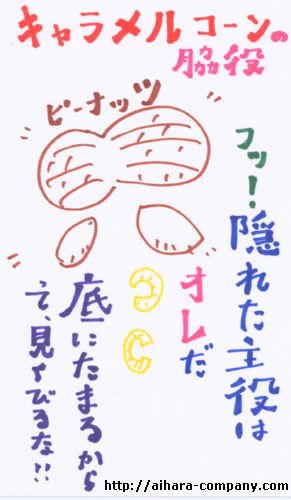 キャラメルコーンの
脇役
ピーナッツ
フッ!
隠れた主役は
オレだ
底にたまるから
って、見くびるな!!
http://aihara-company.com